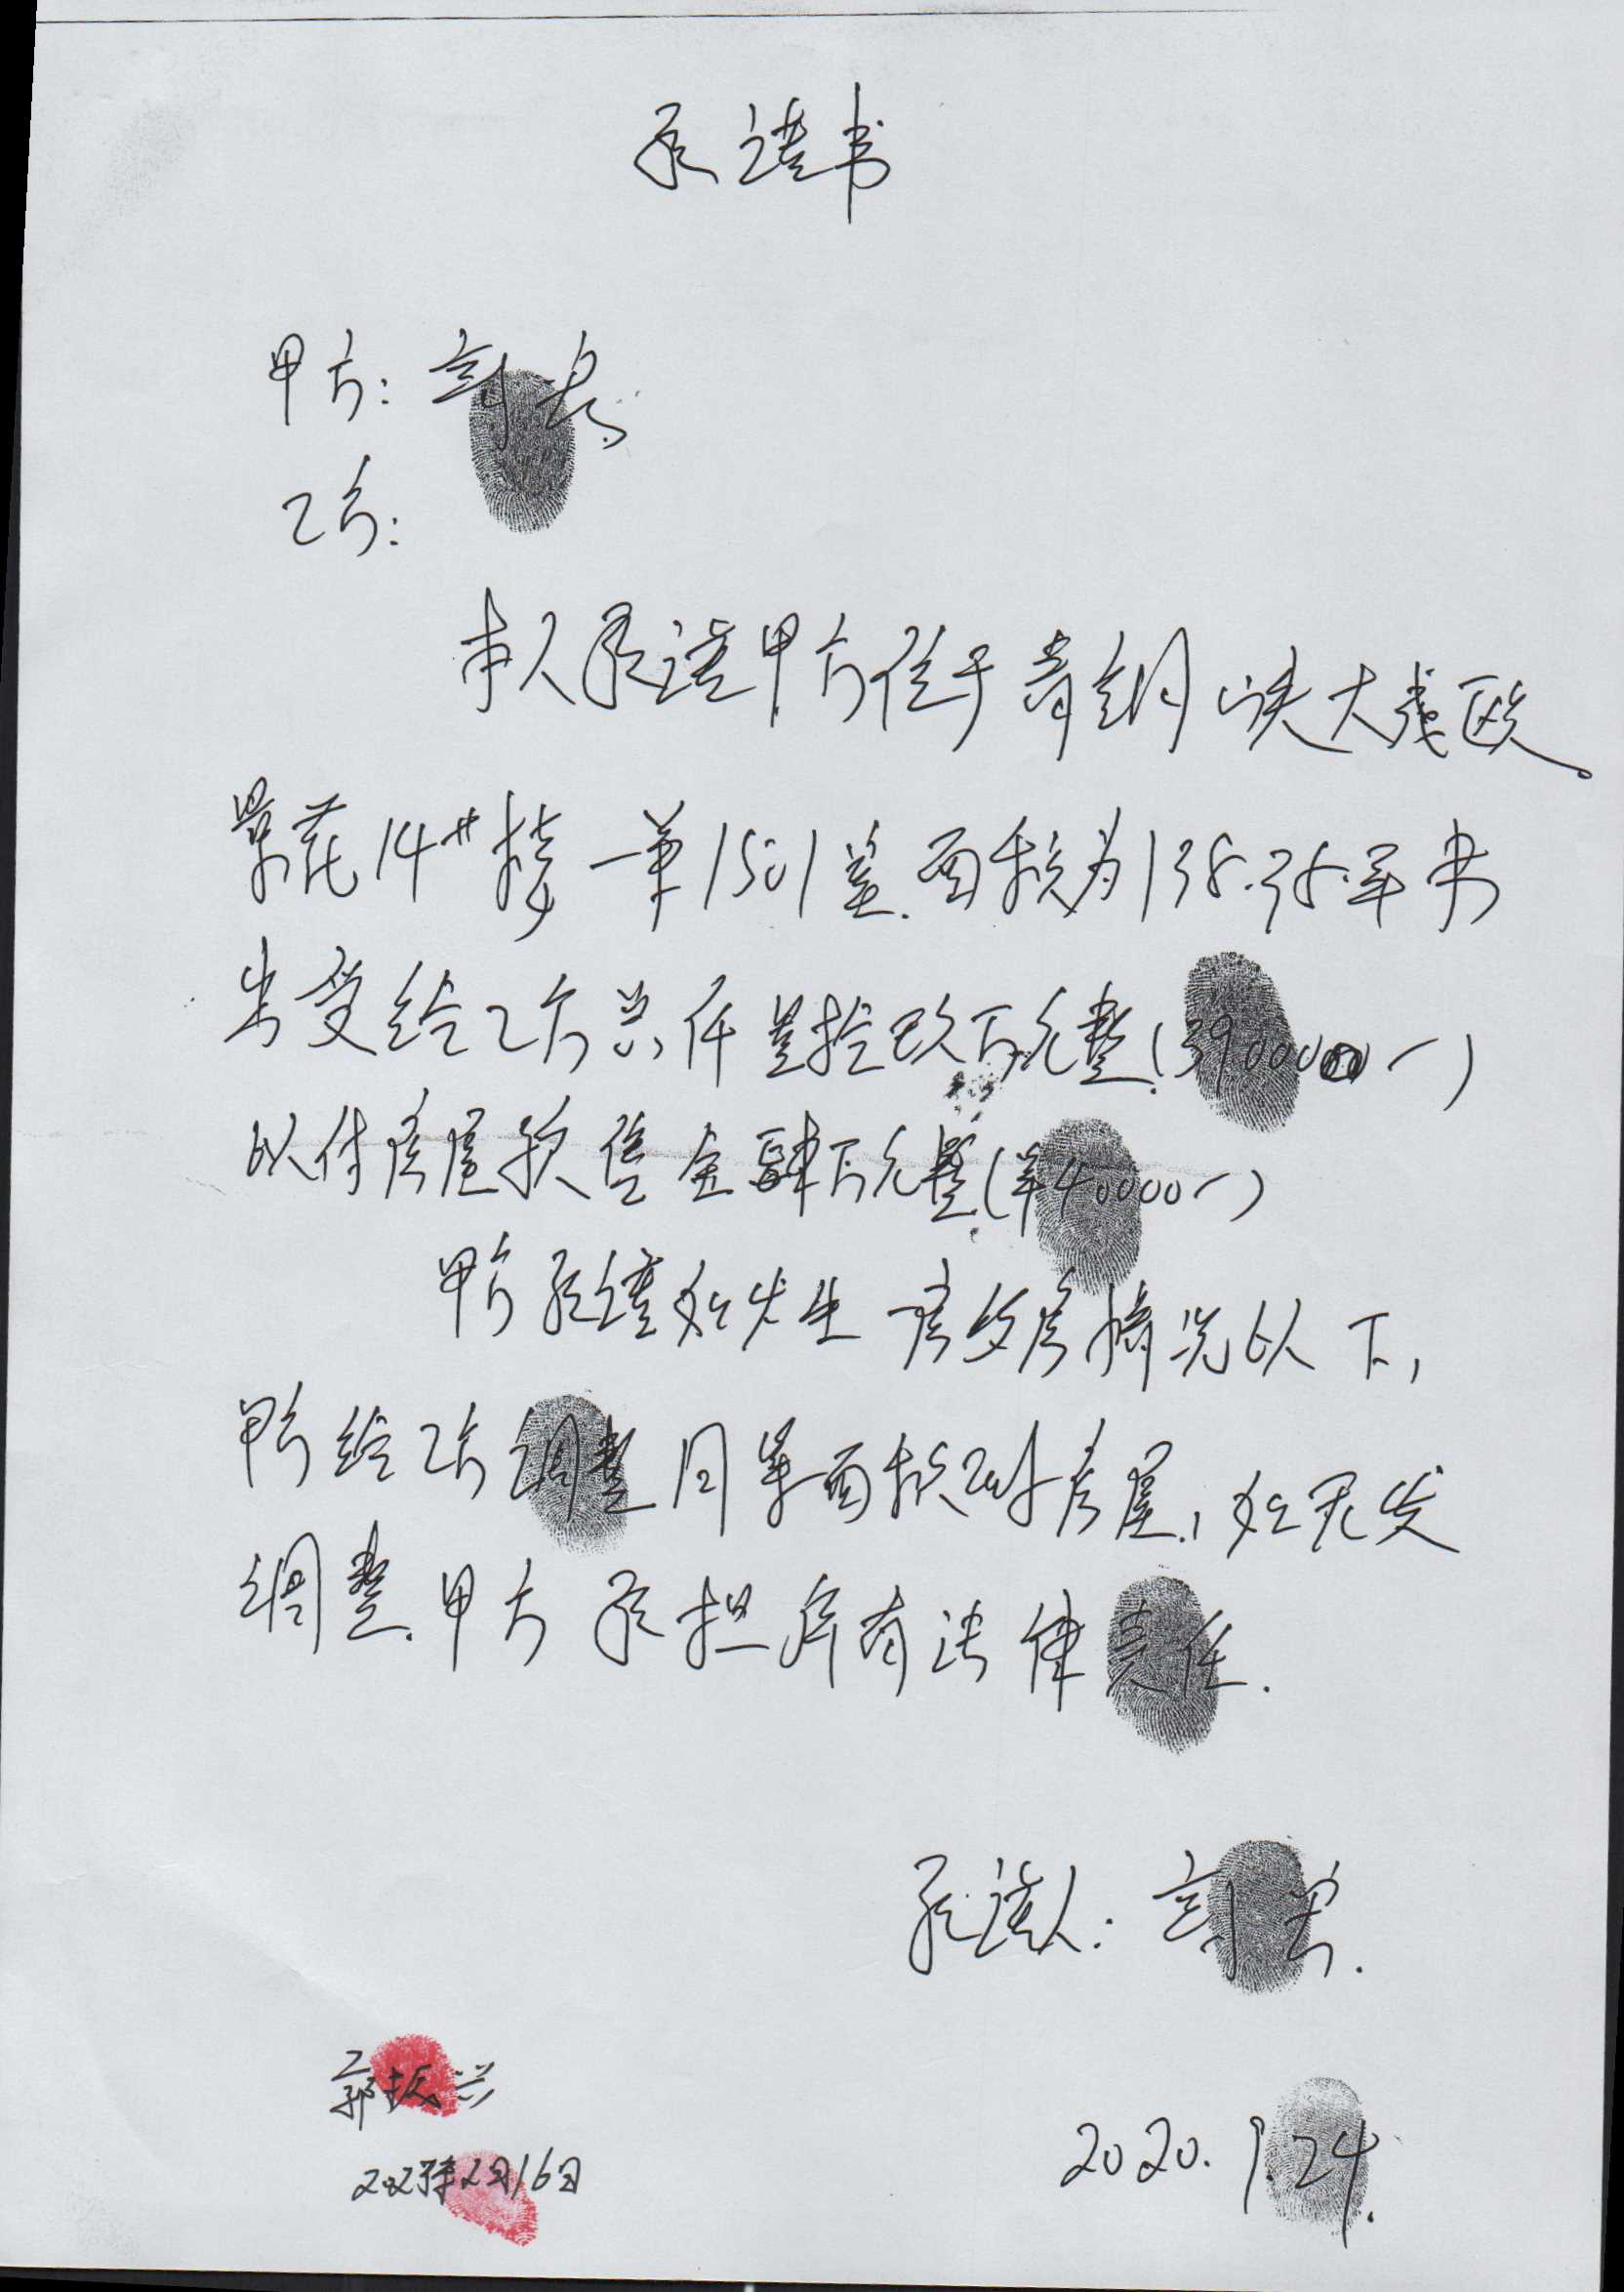 承诺书
甲方：刘
乙方：
本人承诺甲方位于青铜峡大坝区
景花14#楼一单1501室.面积为138.38平米
出受给乙方总价叁拾玖万元整(390000一)
以付房屋预售金肆万元整(羊40000一)
甲方承诺如发生一房多房情况以下,
甲方给乙方调整同等面积的房屋,如无发
调整.甲方承担所有法律责任.
承诺人：刘
郭振兴
2020.9.24.
2023年2月16日